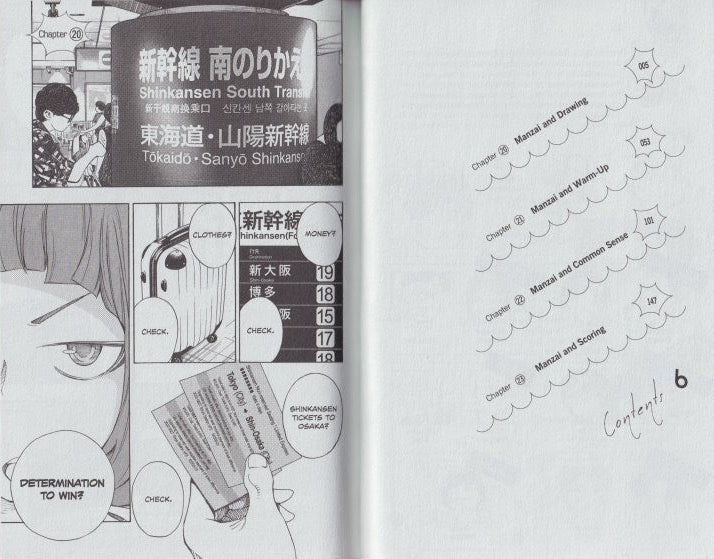 Chapter 20
新幹線 南のりかえ
Shinkansen South Trans
新干线南换乘口 신칸센 남쪽 갈아타는 곳
東海道・山陽新幹線
Tōkaidō・Sanyō Shinkansen
CLOTHES?
CHECK.
MONEY?
新幹線
hinkansen(Fo
行先
Destination
新大阪 19
Shin-Osaka
博多 18
阪 15
17
18
CHECK.
SHINKANSEN
TICKETS TO
OSAKA?
Tokyo (City) Shin-Osaka (City)
CHECK.
DETERMINATION
TO WIN?
005
Chapter 20 Manzai and Drawing
053
Chapter 21 Manzai and Warm-Up
101
Chapter 22 Manzai and Common Sense
147
Chapter 23 Manzai and Scoring
6
Contents